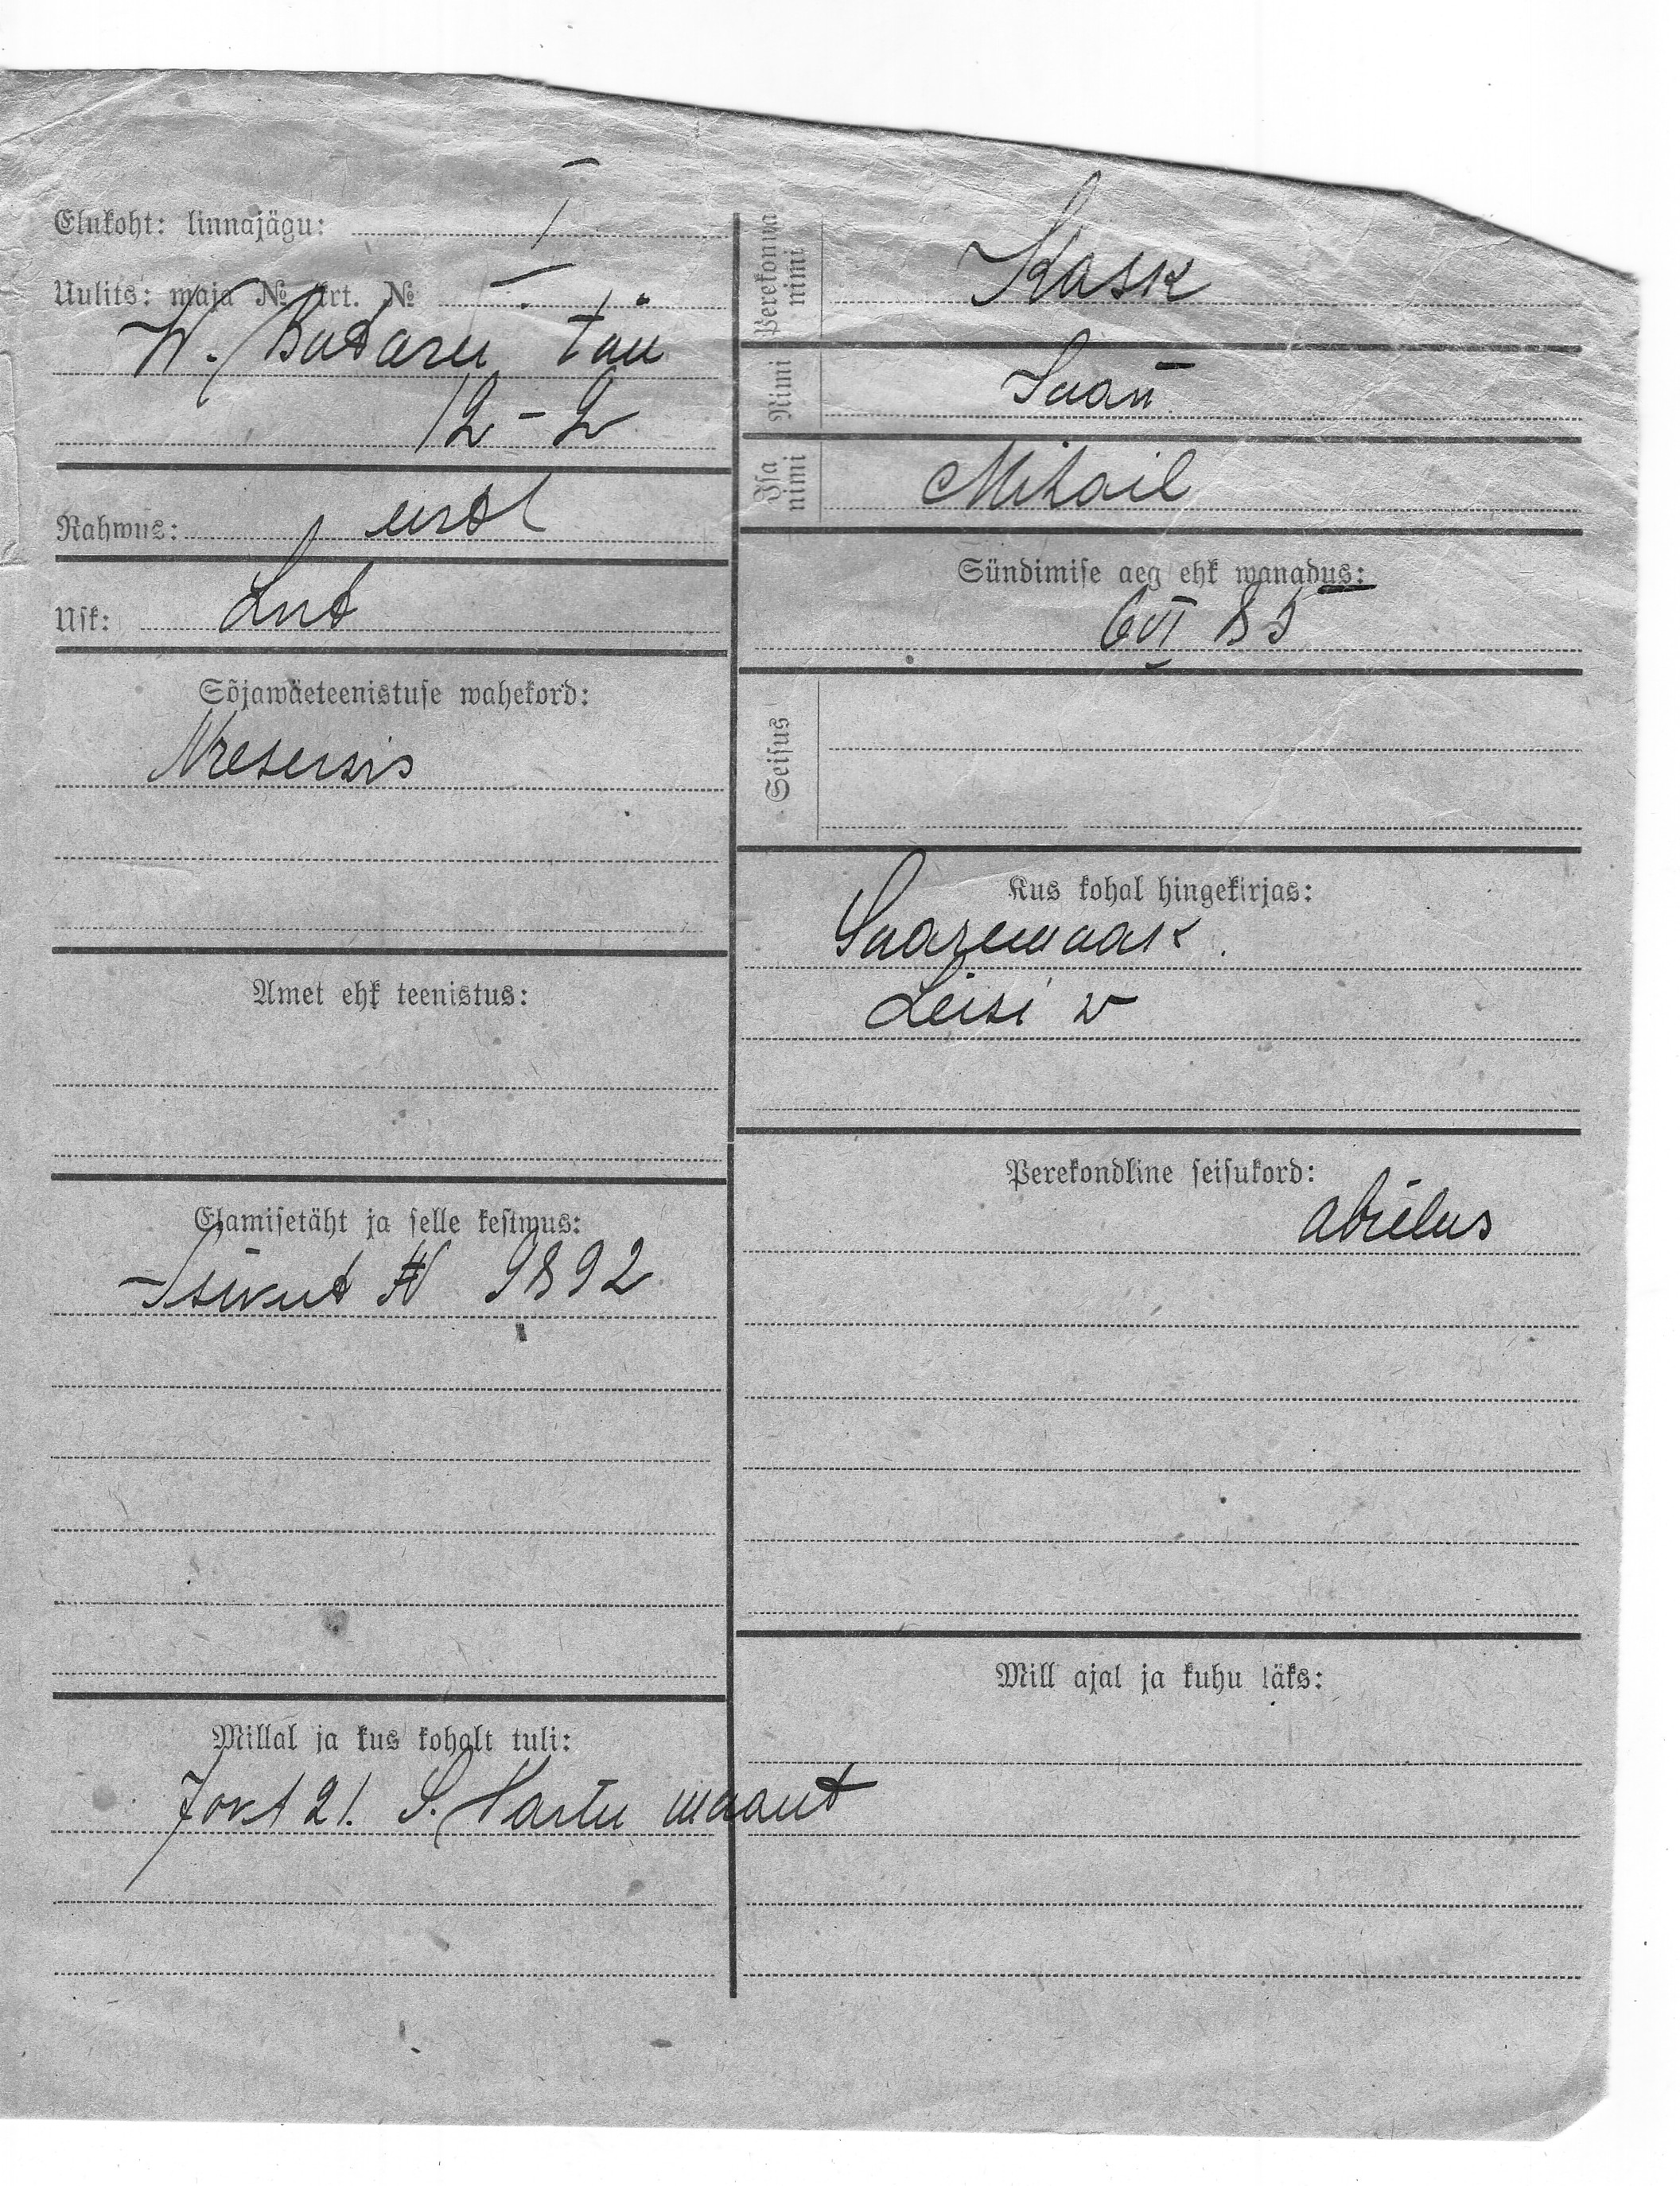 Elukoht: linnajägu: I
Uulits: maja № krt. №
W. Batareu tän
12-2
Rahwus: eestl
Usk: Lut
Sõjawäeteenistuse wahekord:
Amet ehk teenistus:
Elamisetäht ja selle kestwus:
Isikut № 9892
Millal ja kus kohalt tuli:
7 okt 21. S. Hartu maant
Perekonna nimi Kask
Nimi
Isa nimi Mihail
Sündimise aeg ehk wanadus:
6 VI 85
Seisus
Kus kohal hingekirjas:
Saaremaa k.
Leisi w
Perekondline seisukord:
abielus
Mill ajal ja kuhu läks: